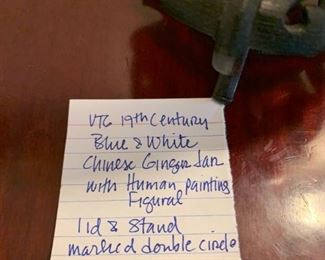 VTG 19th Century
Blue & White
Chinese Ginger Jar
with Human painting
Figural
lid & Stand
marked double circle